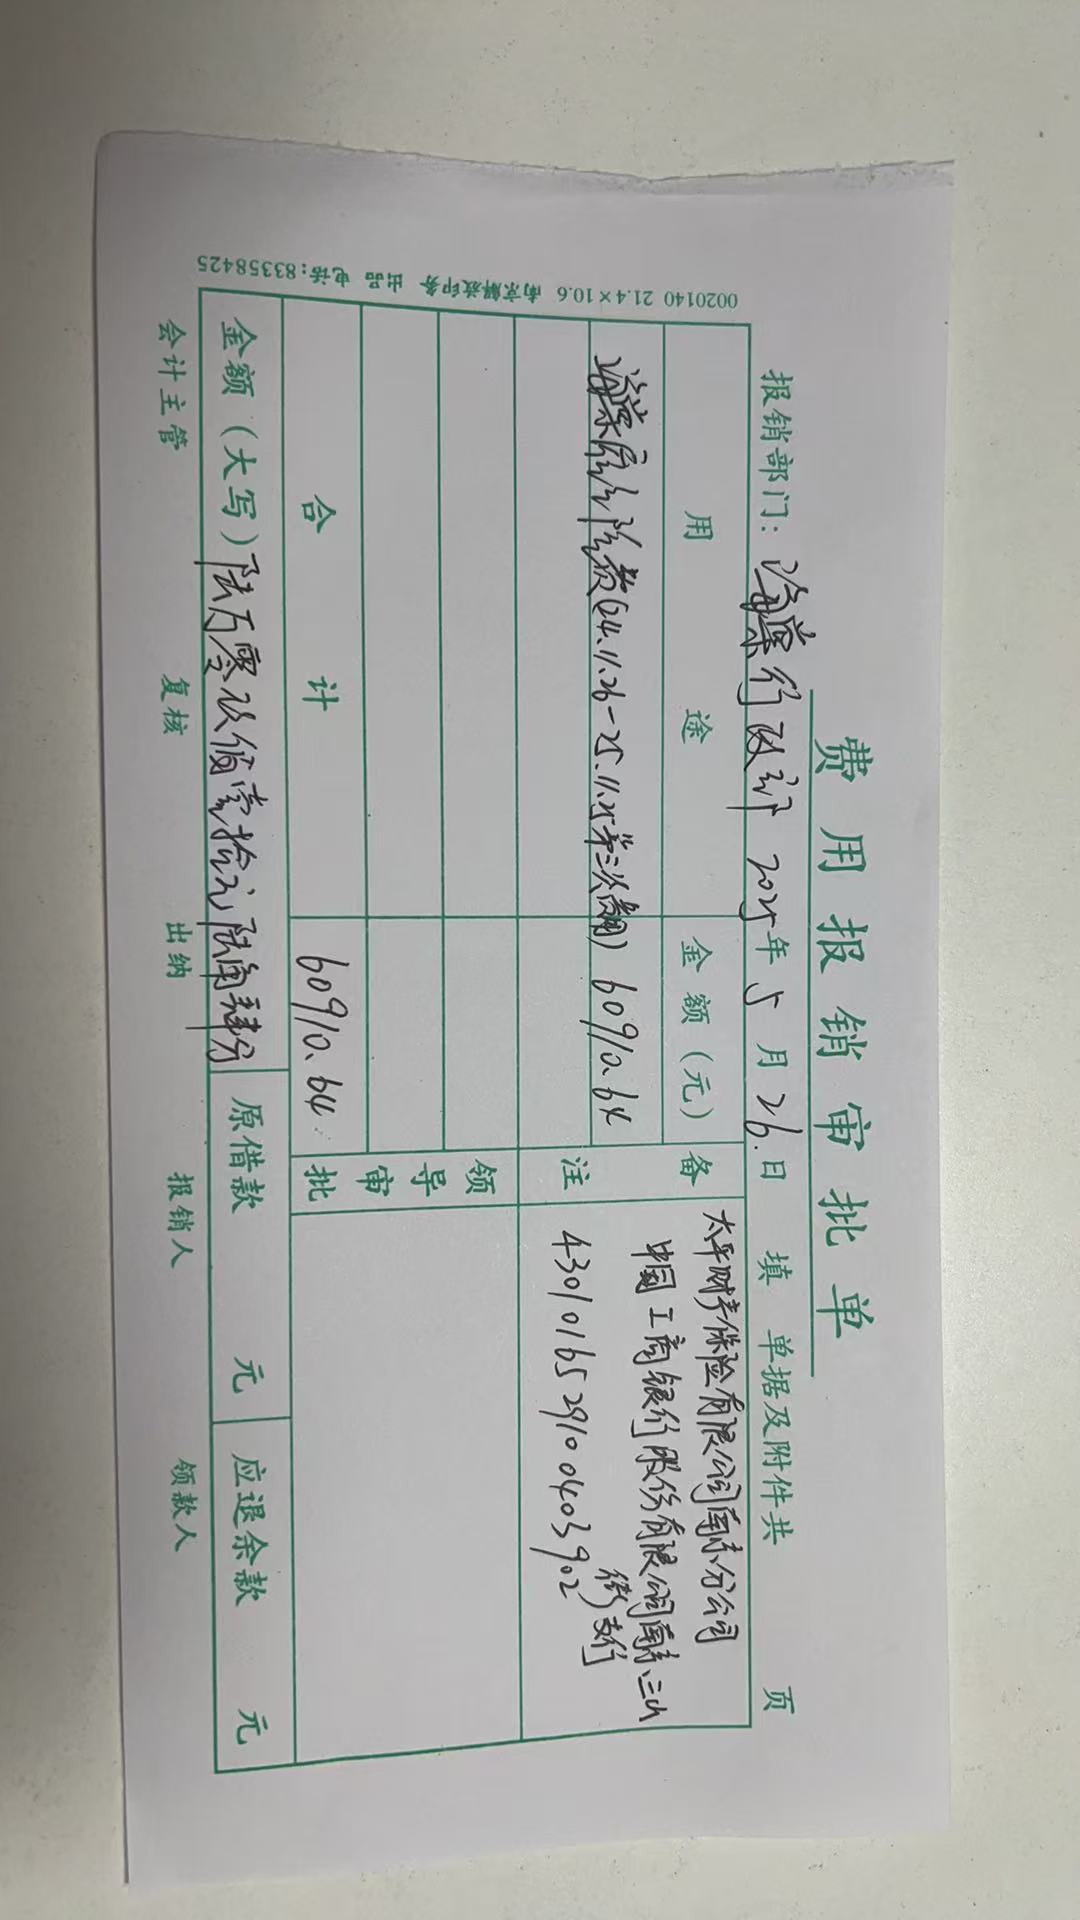 费用报销审批单
报销部门：海棠行政部 2025年5月26日 填 单据及附件共 页
用途 金额（元） 备注
太平财产保险有限公司南京分公司
中国工商银行股份有限公司南京三山
街支行
4301016529100403902
海棠 险费(24.11.26-25.11.25第三次费用) 60910.64
领导审批
合计 60910.64
金额（大写）陆万零玖佰壹拾元陆角肆分 原借款 元 应退余款 元
会计主管 复核 出纳 报销人 领款人
0020140 21.4×10.6 南京解放印务 出品 电话:83358425